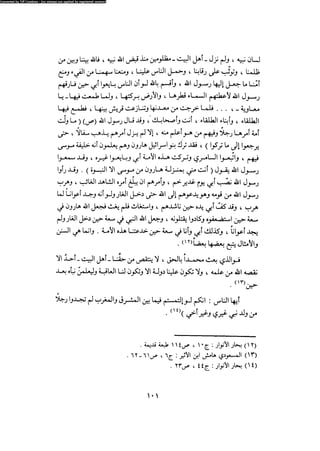 Converted by Tiff Combine - (no stamps are applied by registered version)
من بين وبيننا بيت الله ، نبيه
لسان نبيه ، ولم نزل ـ أهل البيت ـ مظلومين منذ قبض الله نبيه ، فالله بيننا وبين من
ظلمنا ، وتوثّب على رقابنا ، وحمل الناس علينا ، ومنعنا سهمنا من الفيء ومنع
أمّنا ما جعل لها رسول الله . وأقسم بالله لو أنّ الناس بايعوا أبي حين فارقهم
رسول الله لأعطتهم السماء قطرها ، والأرض بركتها ، ولما طمعت فيها ـ يا
معاوية ـ . . . فلمّا خرجت من معدنها تنازعتها قريش بينها ، فطمع فيها
الطلقاء وأبناء الطلقاء ، أنت وأصحابك . وقد قال رسول الله (ص) ( ما ولّت
أمة أمرها رجلاً وفيهم من هو أعلم منه إلا لم يزل أمرهم يذهب سفالاً ، حتّى
يرجعوا إلى ما تركوا ) ، فقد ترك بنو اسرائيل هارون وهم يعلمون أنه خليفة موسى
فيهم ، واتّبعوا السامري وتركت هذه الأمة أبي وبايعوا غيره ، وقد سمعوا
رسول الله يقول ( أنت مني بمنزلة هارون من موسى إلا النبوة ) ، وقد رأوا
رسول الله نصّب أبي يوم غدير خم ، وأمرهم أن يبلّغ أمره الشاهد الغائب ، وهرب
رسول الله من قومه وهو يدعوهم إلى الله حتى دخل الغار ولو أنه وجد أعواناً لما
هرب ، وقد كفّ أبي يده حين ناشدهم ، واستغاث فلم يُغث فجعل الله هارون في
سعة حين استضعفوه وكادوا يقتلونه ، وجعل الله النبي في سعة حين دخل الغار ولم
يجد أعواناً ، وكذلك أبي وأنا في سعة حين خذلتنا هذه الأمة . وانما هي السنن
والأمثال يتبع بعضها بعضاً (١٢) .
فوالذي بعث محمداً بالحق ، لا ينتقص من حقّنا ـ أهل البيت ـ أحدٌ الا
نقصه الله من علمه ، ولا تكون علينا دولة الا وتكون لنا العاقبة ولتعلمنّ نبأه بعد
حين (١٣) .
أيها الناس : إنكم لو التمستم فيما بين المشرق والمغرب لم تجدوا رجلاً
من ولد نبي غيري وغير أخي (١٤) .
(١٢) بحار الأنوار : ج١٠ ، ص١١٤ طبعة قديمة .
(١٣) المسعودي هامش ابن الأثير : ج٦ ، ص٦١ ـ ٦٢ .
(١٤) بحار الأنوار : ج٤٤ ، ص٢٣ .
١٠١